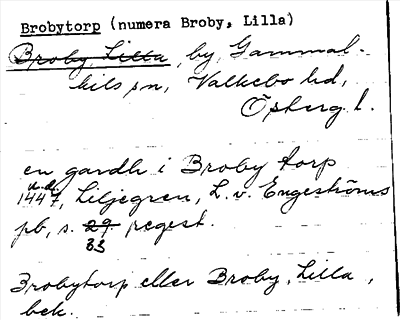 Brobytorp (numera Broby, Lilla)
Broby Lilla, by, Gammal-
kils sn, Valkebo hd,
Östherg. l.
en gardh i Broby torp
u.d.
1447, Liljegren, L. v. Engeströms
pb, s. 29 regest.
33
Brobytorp eller Broby, Lilla,
bek.